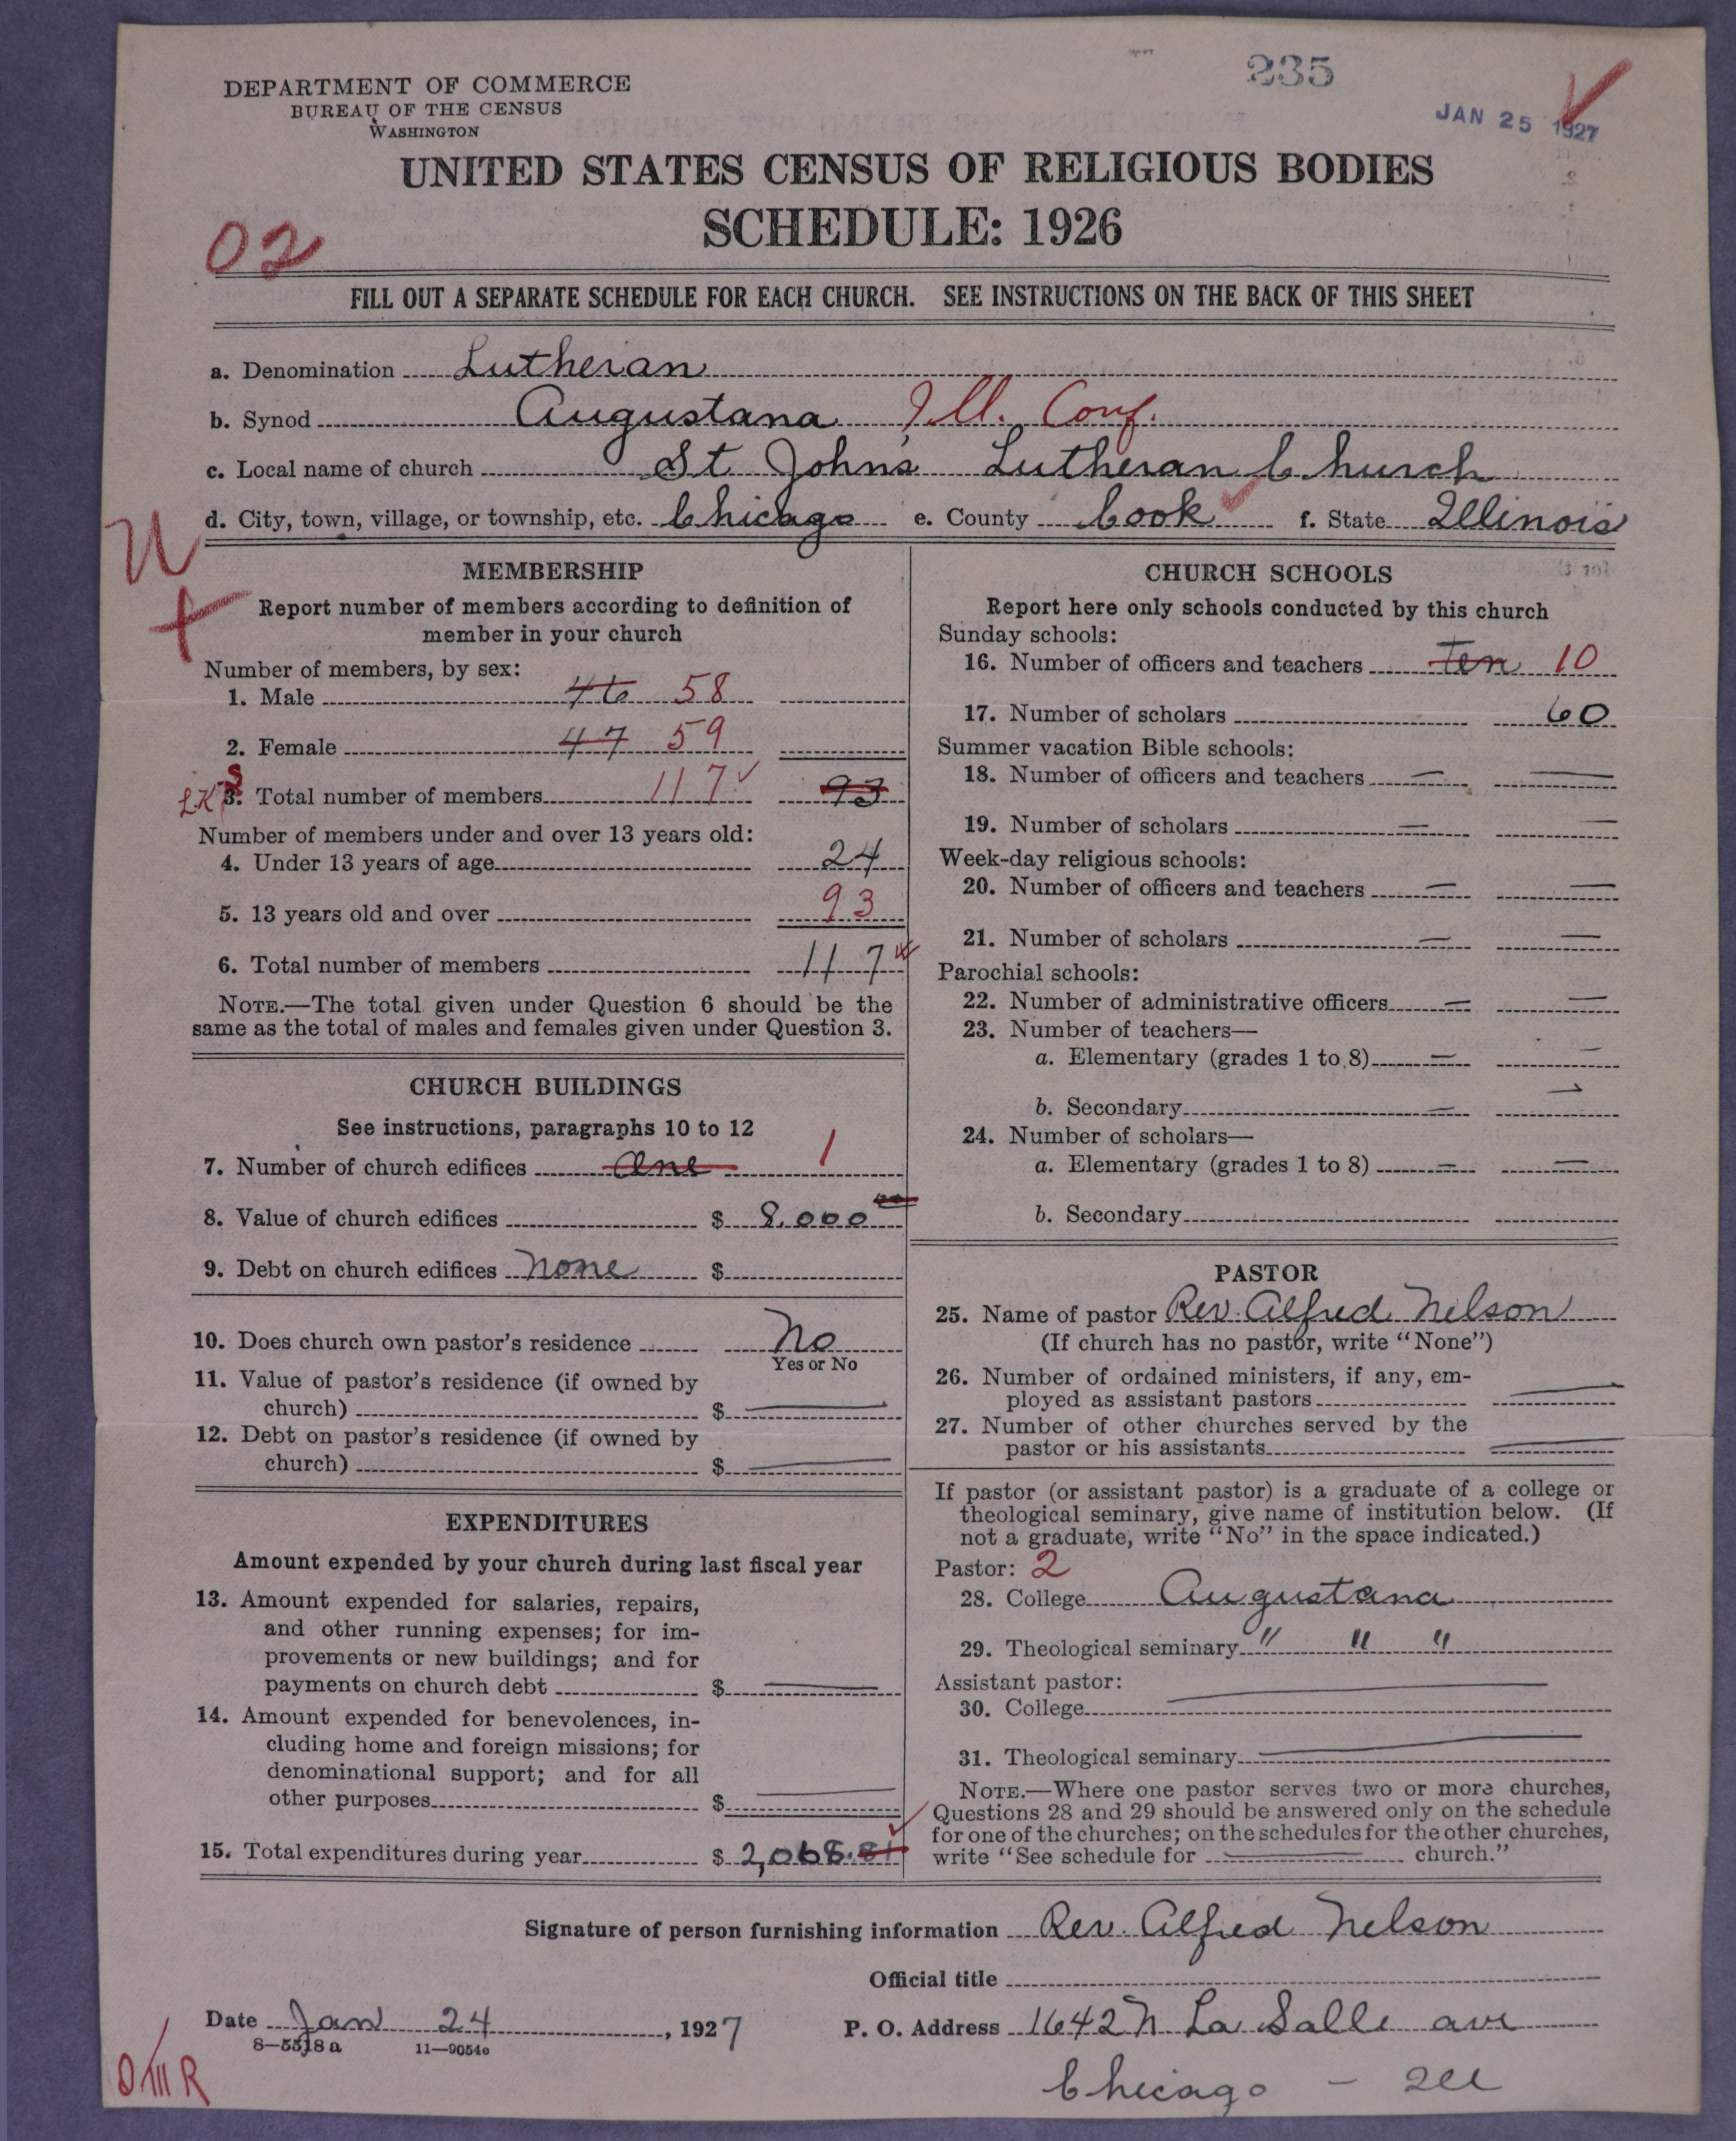 235
JAN 25 1927
DEPARTMENT OF COMMERCE
BUREAU OF THE CENSUS
WASHINGTON
UNITED STATES CENSUS OF RELIGIOUS BODIES
SCHEDULE: 1926
02
FILL OUT A SEPARATE SCHEDULE FOR EACH CHURCH. SEE INSTRUCTIONS ON THE BACK OF THIS SHEET
a. Denomination Lutheran
b. Synod Augustana Ill. Conf.
c. Local name of church St John's Lutheran Church
d. City, town, village, or township, etc. Chicago e. County Cook f. State Illinois
U
MEMBERSHIP
Report number of members according to definition of
member in your church
Number of members, by sex:
1. Male 46 58
2. Female 47 59
LK S 3. Total number of members 117 93
Number of members under and over 13 years old:
4. Under 13 years of age 24
5. 13 years old and over 93
6. Total number of members 117
NOTE.—The total given under Question 6 should be the
same as the total of males and females given under Question 3.
CHURCH BUILDINGS
See instructions, paragraphs 10 to 12
7. Number of church edifices One 1
8. Value of church edifices $ 8,000 00
9. Debt on church edifices None $
10. Does church own pastor's residence No
Yes or No
11. Value of pastor's residence (if owned by
church) $
12. Debt on pastor's residence (if owned by
church) $
EXPENDITURES
Amount expended by your church during last fiscal year
13. Amount expended for salaries, repairs,
and other running expenses; for im-
provements or new buildings; and for
payments on church debt $
14. Amount expended for benevolences, in-
cluding home and foreign missions; for
denominational support; and for all
other purposes $
15. Total expenditures during year $ 2,068.81
CHURCH SCHOOLS
Report here only schools conducted by this church
Sunday schools:
16. Number of officers and teachers Ten 10
17. Number of scholars 60
Summer vacation Bible schools:
18. Number of officers and teachers — —
19. Number of scholars — —
Week-day religious schools:
20. Number of officers and teachers — —
21. Number of scholars — —
Parochial schools:
22. Number of administrative officers — —
23. Number of teachers—
a. Elementary (grades 1 to 8) — —
b. Secondary — —
24. Number of scholars—
a. Elementary (grades 1 to 8) — —
b. Secondary
PASTOR
25. Name of pastor Rev. Alfred Nelson
(If church has no pastor, write "None")
26. Number of ordained ministers, if any, em-
ployed as assistant pastors —
27. Number of other churches served by the
pastor or his assistants —
If pastor (or assistant pastor) is a graduate of a college or
theological seminary, give name of institution below. (If
not a graduate, write "No" in the space indicated.)
Pastor: 2
28. College Augustana
29. Theological seminary " " "
Assistant pastor:
30. College —
31. Theological seminary —
NOTE.—Where one pastor serves two or more churches,
Questions 28 and 29 should be answered only on the schedule
for one of the churches; on the schedules for the other churches,
write "See schedule for — church."
Signature of person furnishing information Rev. Alfred Nelson
Official title
Date Jan 24, 1927 P. O. Address 1642 N La Salle ave
8—5518 a 11—9054e
Chicago — Ill